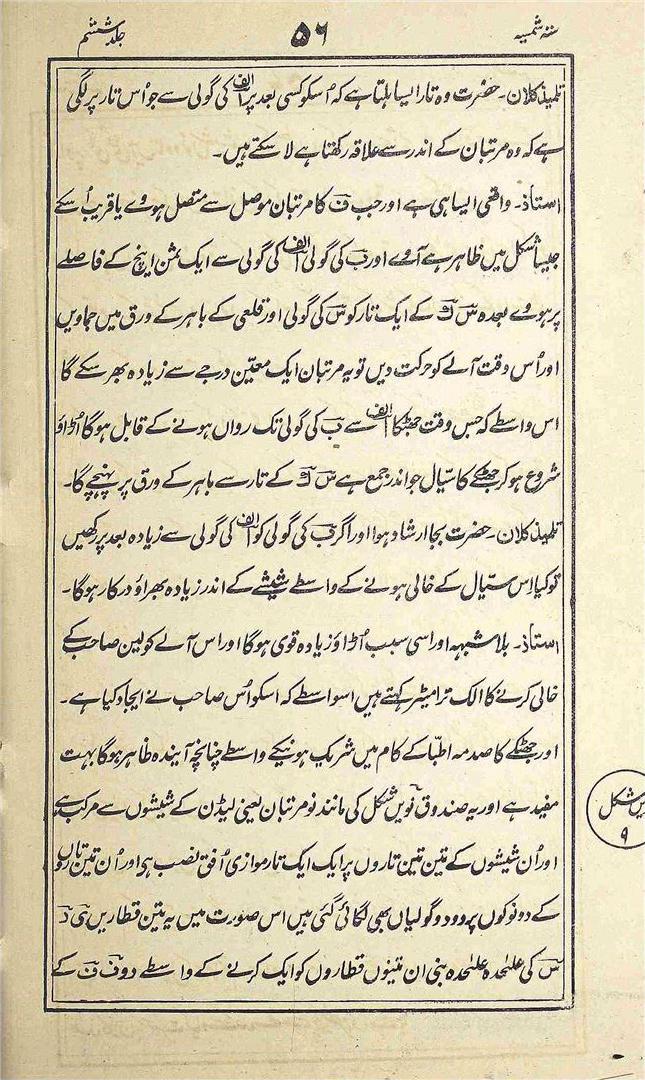 ستہ شمسیہ ۵۶ جلد ششم
تلمیذ کلان۔ حضرت وہ تار ایسا ہلتا ہے کہ اُسکو کسی بعد پر الف کی گولی سے جو اُس تار پر لگی
ہے کہ وہ مرتبان کے اندر سے علاقہ رکھتا ہے لا سکتے ہیں۔
استاذ۔ واقعی ایسا ہی ہے اور جب ف کا مرتبان موصل سے متصل ہووے یا قریب اُسکے
جیسا شکل میں ظاہر ہے آوے اور ب کی گولی الف کی گولی سے ایک ثمن اینچ کے فاصلے
پر ہووے بعدہ س کے ایک تار کو س کی گولی اور قلعی کے باہر کے ورق میں جماویں
اور اُس وقت آلے کو حرکت دیں تو یہ مرتبان ایک معیّن درجے سے زیادہ بھر سکے گا
اس واسطے کہ جس وقت جھٹکا الف سے ب کی گولی تک رواں ہونے کے قابل ہوگا اُڑاؤ
شروع ہو کر جھٹکے کا سیّال جو اندر جمع ہے س کے تار سے باہر کے ورق پر پہنچے گا۔
تلمیذ کلان۔ حضرت بجا ارشاد ہوا اور اگر ب کی گولی کو الف کی گولی سے زیادہ بعد پر رکھیں
تو کیا اِس سیّال کے خالی ہونے کے واسطے شیشے کے اندر زیادہ بھراؤ درکار ہوگا۔
استاذ۔ بلا شبہہ اور اسی سبب اُڑاؤ زیادہ قوی ہوگا اور اس آلے کو لین صاحب کے
خالی کرنے کا الک ترامیٹر کہتے ہیں اسواسطے کہ اسکو اُس صاحب نے ایجاد کیا ہے۔
اور جھٹکے کا صدمہ اطبّا کے کام میں شریک ہونیکے واسطے چنانچہ آیندہ ظاہر ہوگا بہت
مفید ہے اور یہ صندوق نویں شکل کی مانند نو مرتبان یعنی لیڈن کے شیشوں سے مرکب ہے
شکل ۹
اور اُن شیشوں کے تین تین تاروں پر ایک ایک تار موازی اُفق نصب ہی اور اُن تین تاروں
کے دو نوکوں پر دو دو گولیاں بھی لگائی گئی ہیں اس صورت میں یہ تین قطاریں
س کی علٰحدہ علٰحدہ بنی ان تینوں قطاروں کو ایک کرنے کے واسطے دو ف ف کے